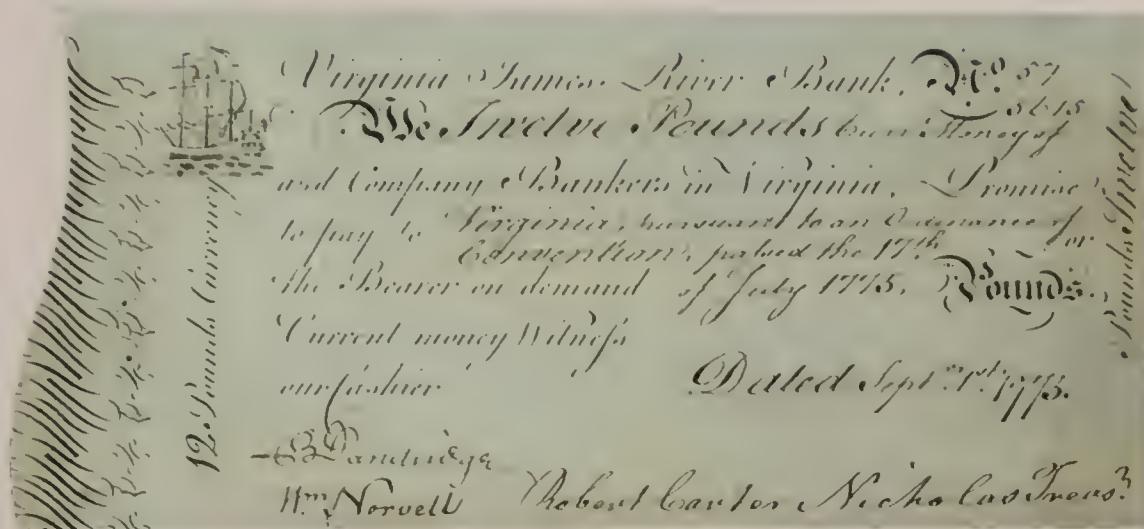 Virginia James River Bank. No. 57
5615
We Twelve Pounds Current Money of
and Company Bankers in Virginia, Promise
to pay to Virginia, pursuant to an Ordinance of
Convention, passed the 17th or
the Bearer on demand of July 1775. Pounds.
Current money Witness
our Cashier Dated Sept. 1st 1775.
B Dandridge
Wm. Norvell Robert Carter Nicholas Treasr.
12. Pounds Currency
Pounds Twelve